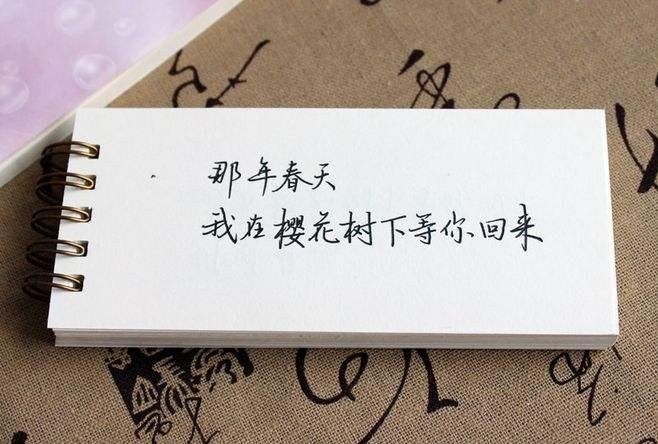 那年春天
我在樱花树下等你回来